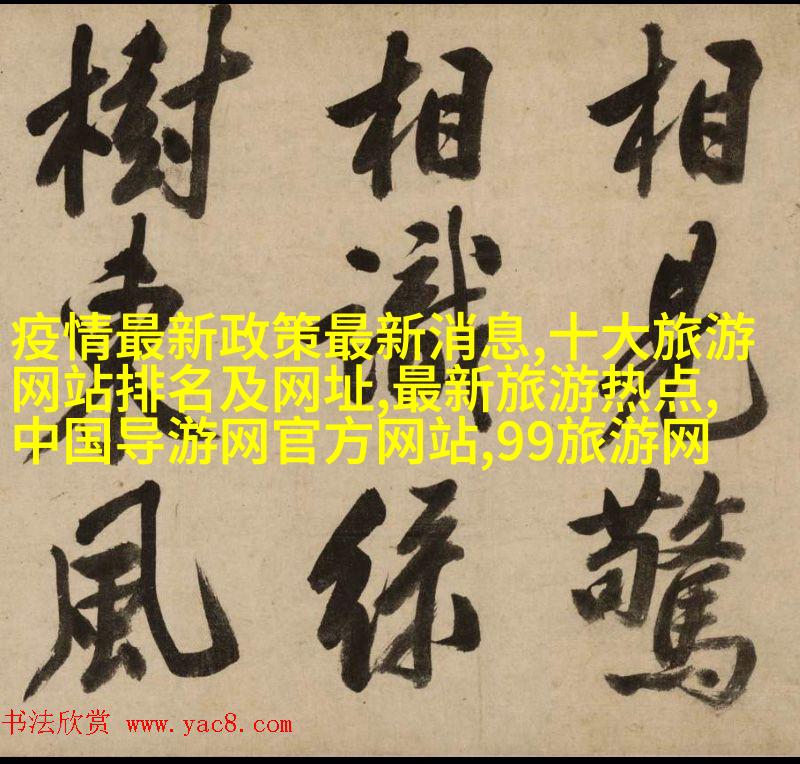 相見驚
相識綠
樹東風
疫情最新政策最新消息,十大旅游
网站排名及网址,最新旅游热点,
中国导游网官方网站,99旅游网
书法欣赏 www.yac8.com